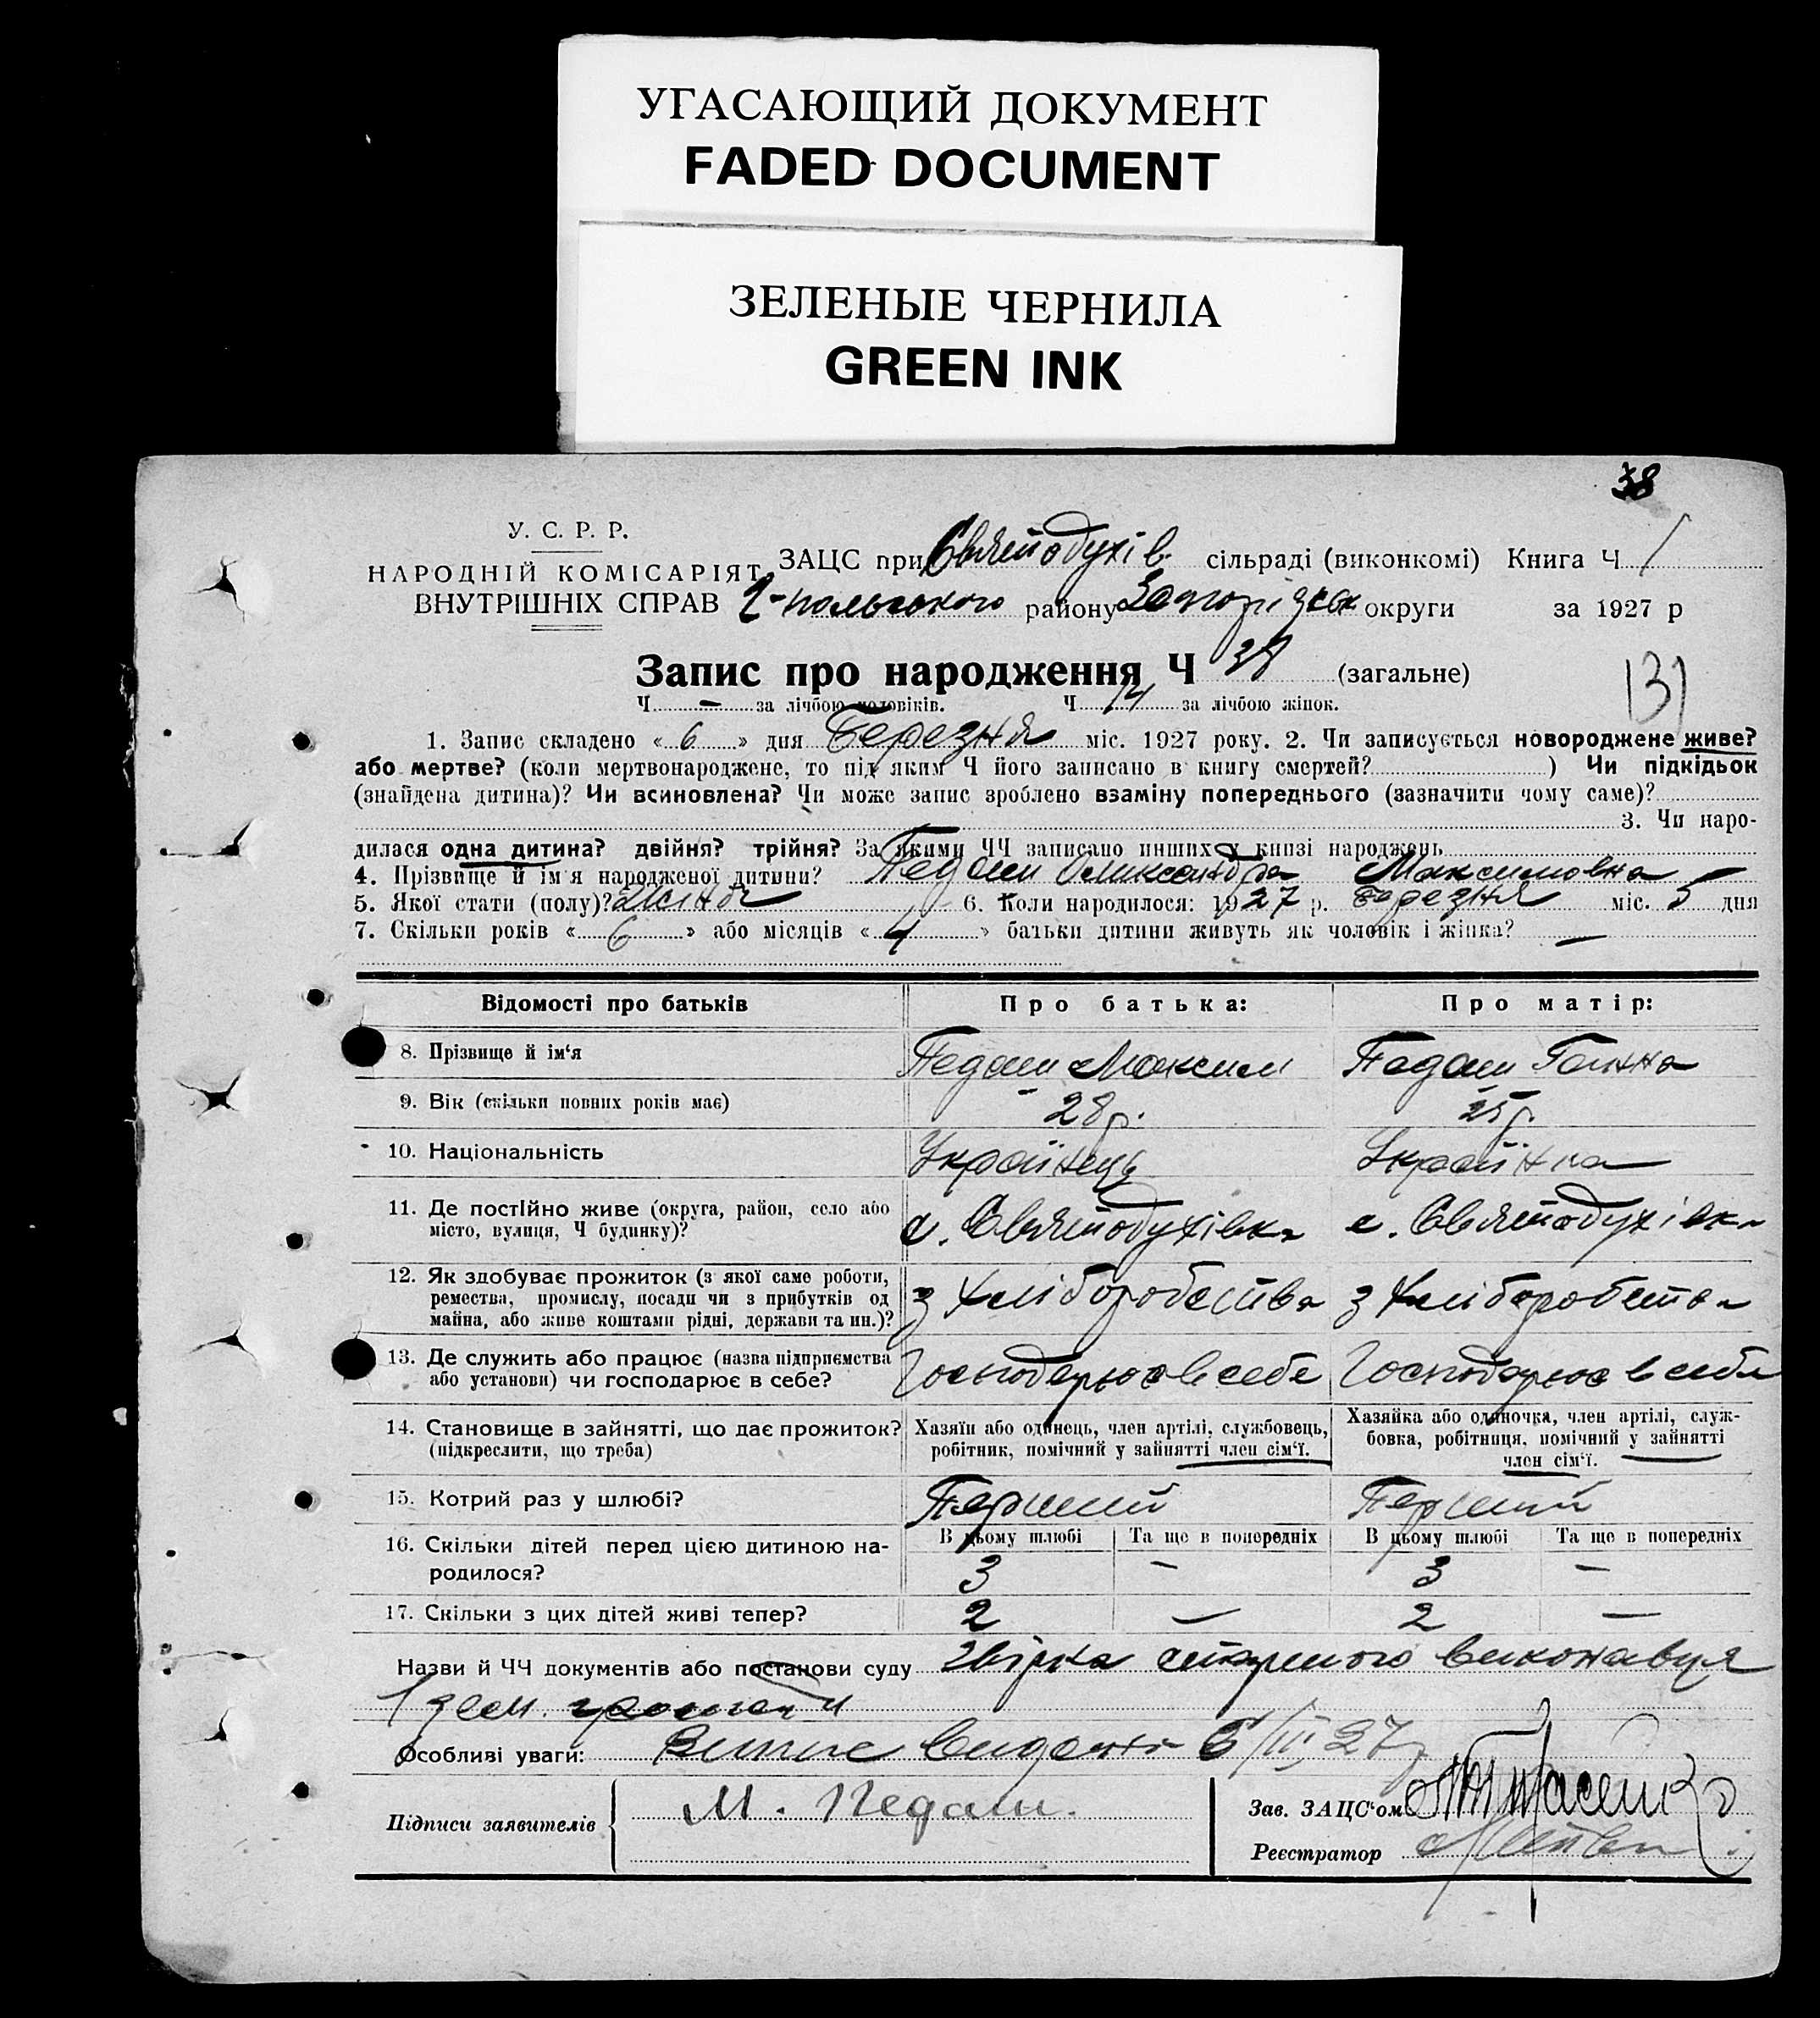 УГАСАЮЩИЙ ДОКУМЕНТ
FADED DOCUMENT
ЗЕЛЕНЫЕ ЧЕРНИЛА
GREEN INK
38
У. С. Р. Р.
НАРОДНІЙ КОМІСАРІЯТ
ВНУТРІШНІХ СПРАВ
ЗАЦС при Святодухів. сільраді (виконкомі) Книга Ч 1
району округи за 1927 р
Запис про народження Ч (загальне)
Ч — за лічбою чоловіків. Ч 14 за лічбою жінок.
1. Запис складено « 6 » дня Березня міс. 1927 року. 2. Чи записується новороджене живе?
або мертве? (коли мертвонароджене, то під яким Ч його записано в книгу смертей? ) Чи підкідьок
(знайдена дитина)? Чи всиновлена? Чи може запис зроблено взаміну попереднього (зазначити чому саме)?
3. Чи наро-
дилася одна дитина? двійня? трійня? За якими ЧЧ записано инших у книзі народжень
4. Прізвище й ім'я народженої дитини? Педаш Олександра Максимовна
5. Якої стати (полу)? 6. Коли народилося: 1927 р. Березня міс. 5 дня
7. Скільки років « 6 » або місяців « » батьки дитини живуть як чоловік і жінка? —
Відомості про батьків Про батька: Про матір:
8. Прізвище й ім'я Педаш Максим Педаш Ганна
9. Вік (скільки повних років має) 28 р. 25 р.
10. Національність Українець Українка
11. Де постійно живе (округа, район, село або
місто, вулиця, Ч будинку)? с. Святодухівка с. Святодухівка
12. Як здобуває прожиток (з якої саме роботи,
ремества, промислу, посади чи з прибутків од
майна, або живе коштами рідні, держави та ин.)? з хліборобства з хліборобства
13. Де служить або працює (назва підприємства
або установи) чи господарює в себе? Господарює в себе Господарює в себе
14. Становище в зайнятті, що дає прожиток?
(підкреслити, що треба)
Хазяїн або одинець, член артілі, службовець,
робітник, помічний у зайнятті член сім'ї.
Хазяйка або одиночка, член артілі, служ-
бовка, робітниця, помічний у зайнятті
член сім'ї.
15. Котрий раз у шлюбі? Перший Перший
В цьому шлюбі Та ще в попередніх В цьому шлюбі Та ще в попередніх
16. Скільки дітей перед цією дитиною на-
родилося? 3 — 3 —
17. Скільки з цих дітей живі тепер? 2 — 2 —
Назви й ЧЧ документів або постанови суду виконавця
зем. громади
Особливі уваги: Витяг видано 6/III 27
Підписи заявителів М. Педаш.
Зав. ЗАЦС'ом
Реєстратор